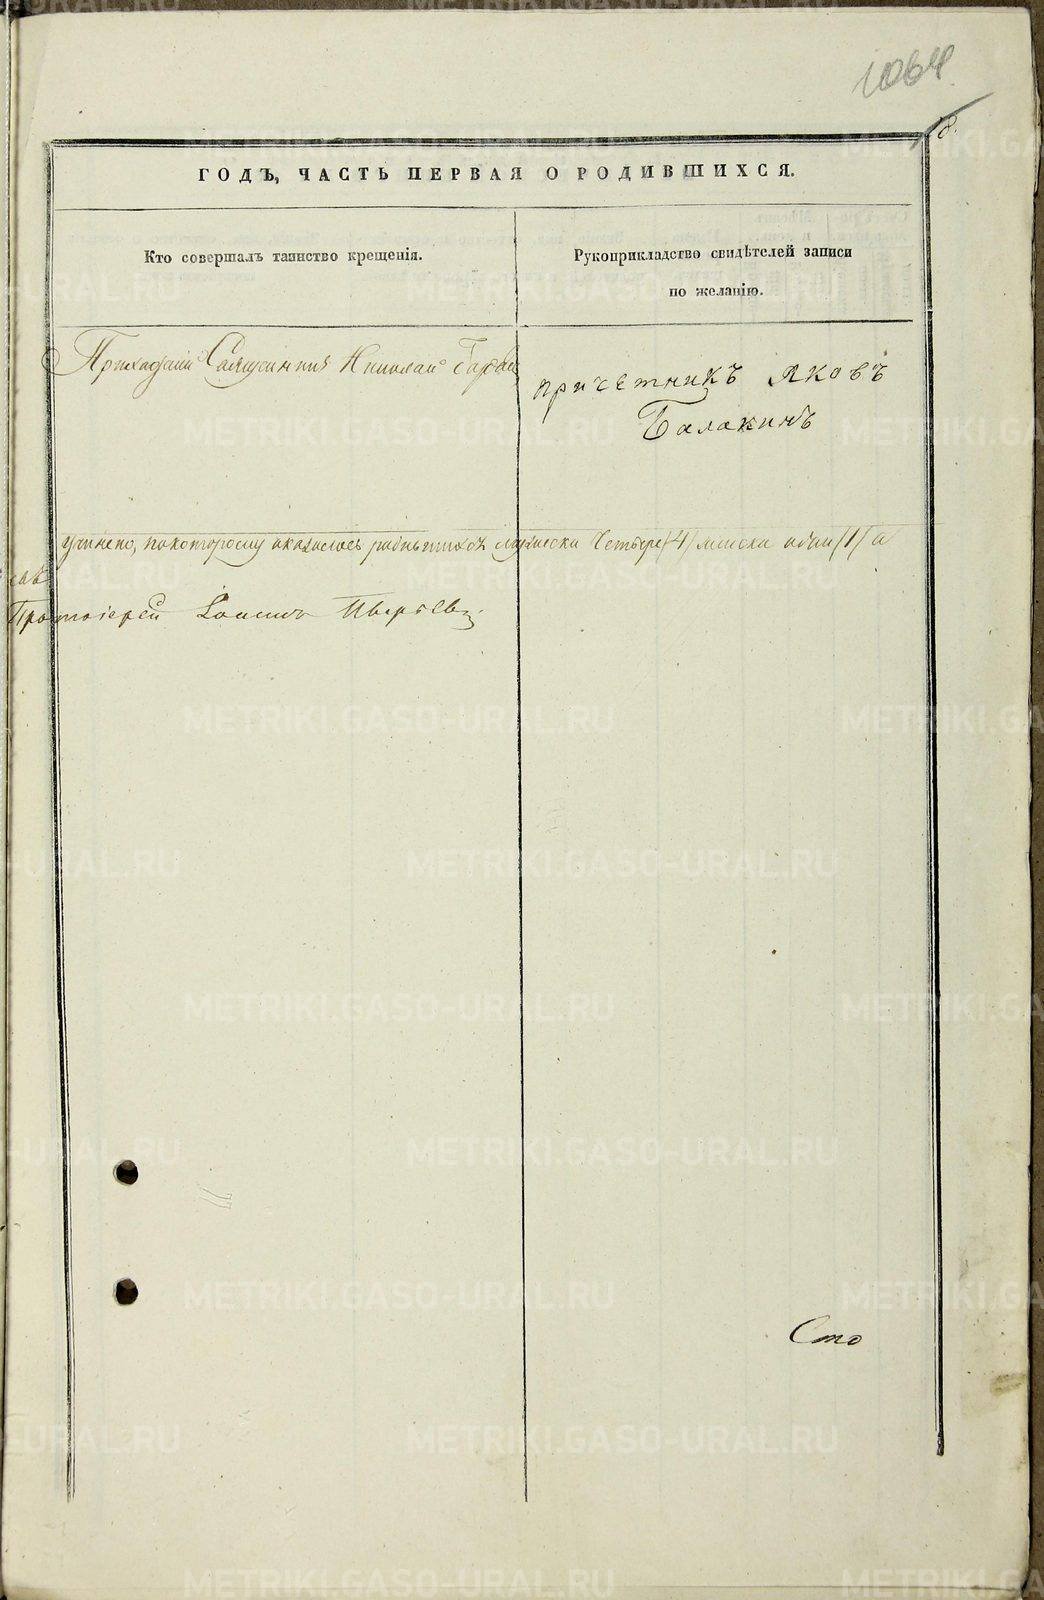 1064
8.
ГОДЪ, ЧАСТЬ ПЕРВАЯ О РОДИВШИХСЯ.
Кто совершалъ таинство крещенія.
Рукоприкладство свидѣтелей записи
по желанію.
Приходскій Священникъ Николай
причетникъ Яковъ
Балакинъ
учинено, по которому оказалось родившихся мужеска Четыре /4/ женска один /1/ а
Протоіерей Іоаннъ
Сто
METRIKI.GASO-URAL.RU